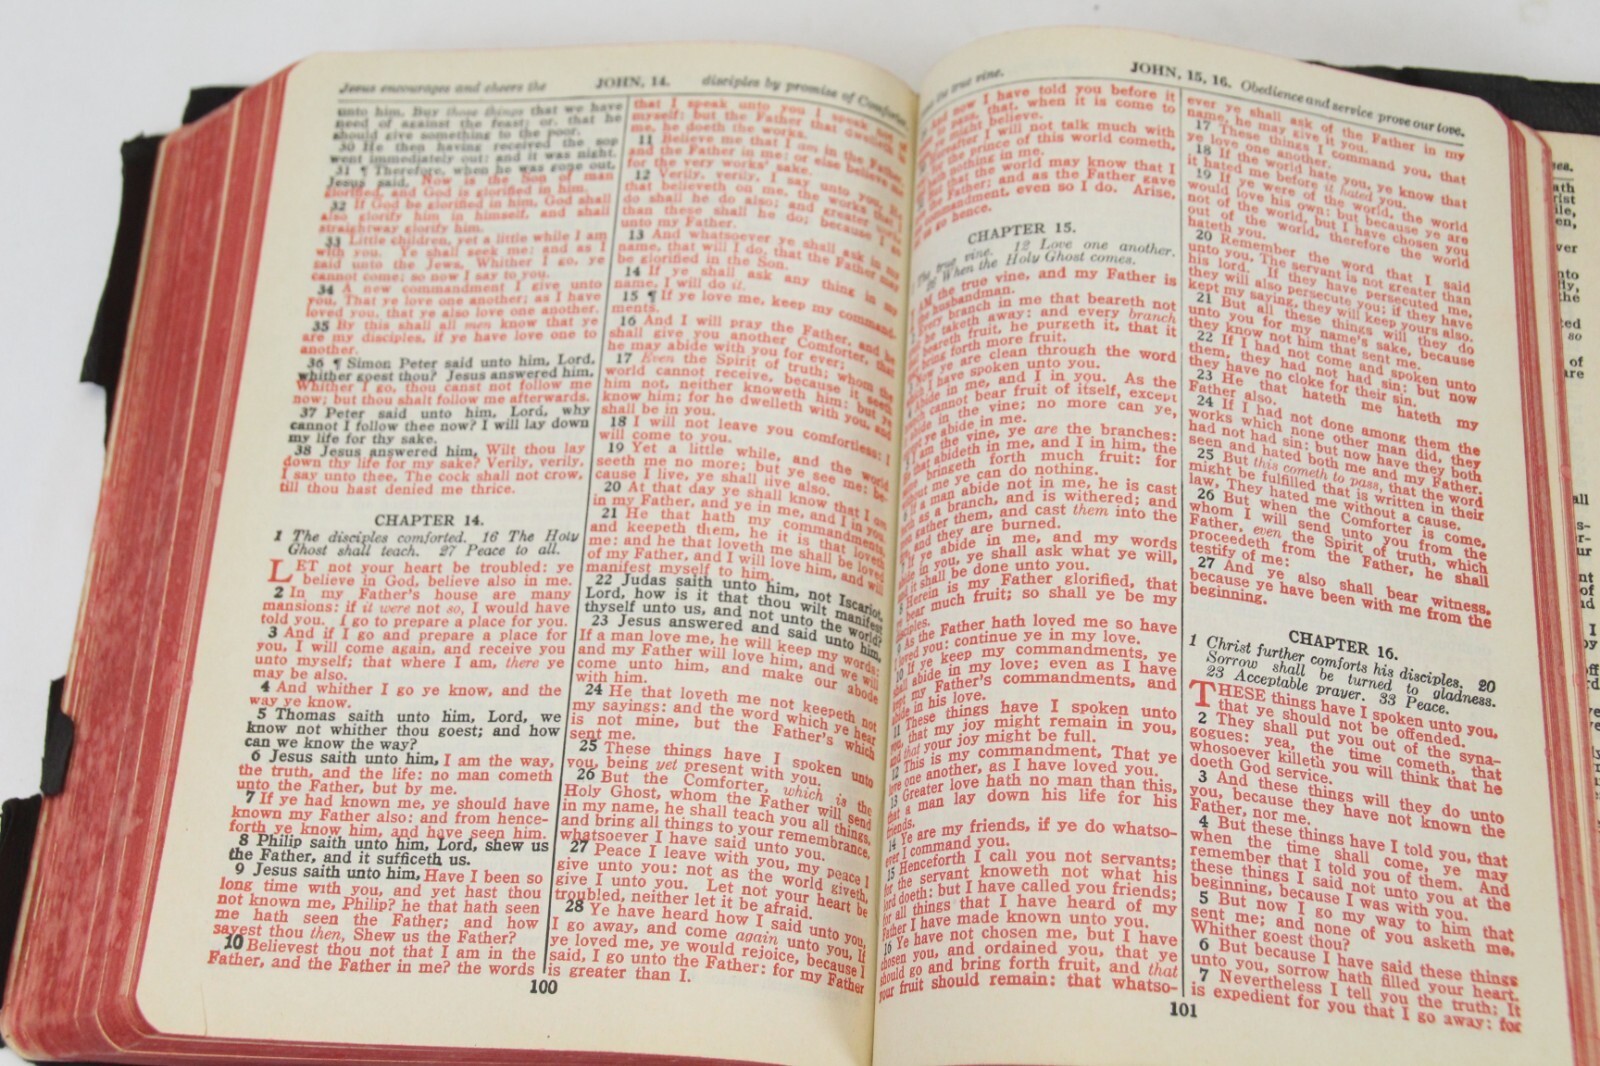 Jesus encourages and cheers the JOHN, 14. disciples by promise of Comforter
unto him, Buy those things that we have
need of against the feast; or, that he
should give something to the poor.
30 He then having received the sop
went immediately out: and it was night.
31 ¶ Therefore, when he was gone out,
Jesus said, Now is the Son of man
glorified, and God is glorified in him.
32 If God be glorified in him, God shall
also glorify him in himself, and shall
straightway glorify him.
33 Little children, yet a little while I am
with you. Ye shall seek me: and as I
said unto the Jews, Whither I go, ye
cannot come; so now I say to you.
34 A new commandment I give unto
you, That ye love one another; as I have
loved you, that ye also love one another.
35 By this shall all men know that ye
are my disciples, if ye have love one to
another.
36 ¶ Simon Peter said unto him, Lord,
whither goest thou? Jesus answered him,
Whither I go, thou canst not follow me
now; but thou shalt follow me afterwards.
37 Peter said unto him, Lord, why
cannot I follow thee now? I will lay down
my life for thy sake.
38 Jesus answered him, Wilt thou lay
down thy life for my sake? Verily, verily,
I say unto thee, The cock shall not crow,
till thou hast denied me thrice.
CHAPTER 14.
1 The disciples comforted. 16 The Holy
Ghost shall teach. 27 Peace to all.
LET not your heart be troubled: ye
believe in God, believe also in me.
2 In my Father's house are many
mansions: if it were not so, I would have
told you. I go to prepare a place for you.
3 And if I go and prepare a place for
you, I will come again, and receive you
unto myself; that where I am, there ye
may be also.
4 And whither I go ye know, and the
way ye know.
5 Thomas saith unto him, Lord, we
know not whither thou goest; and how
can we know the way?
6 Jesus saith unto him, I am the way,
the truth, and the life: no man cometh
unto the Father, but by me.
7 If ye had known me, ye should have
known my Father also: and from hence-
forth ye know him, and have seen him.
8 Philip saith unto him, Lord, shew us
the Father, and it sufficeth us.
9 Jesus saith unto him, Have I been so
long time with you, and yet hast thou
not known me, Philip? he that hath seen
me hath seen the Father; and how
sayest thou then, Shew us the Father?
10 Believest thou not that I am in the
Father, and the Father in me? the words
that I speak unto you I speak not of
myself: but the Father that dwelleth in
me, he doeth the works.
11 Believe me that I am in the Father,
and the Father in me: or else believe me
for the very works' sake.
12 Verily, verily, I say unto you, He
that believeth on me, the works that I
do shall he do also; and greater works
than these shall he do; because I go
unto my Father.
13 And whatsoever ye shall ask in my
name, that will I do, that the Father may
be glorified in the Son.
14 If ye shall ask any thing in my
name, I will do it.
15 ¶ If ye love me, keep my command-
ments.
16 And I will pray the Father, and he
shall give you another Comforter, that
he may abide with you for ever;
17 Even the Spirit of truth; whom the
world cannot receive, because it seeth
him not, neither knoweth him: but ye
know him; for he dwelleth with you, and
shall be in you.
18 I will not leave you comfortless: I
will come to you.
19 Yet a little while, and the world
seeth me no more; but ye see me: be-
cause I live, ye shall live also.
20 At that day ye shall know that I am
in my Father, and ye in me, and I in you.
21 He that hath my commandments,
and keepeth them, he it is that loveth
me: and he that loveth me shall be loved
of my Father, and I will love him, and will
manifest myself to him.
22 Judas saith unto him, not Iscariot,
Lord, how is it that thou wilt manifest
thyself unto us, and not unto the world?
23 Jesus answered and said unto him,
If a man love me, he will keep my words:
and my Father will love him, and we will
come unto him, and make our abode
with him.
24 He that loveth me not keepeth not
my sayings: and the word which ye hear
is not mine, but the Father's which
sent me.
25 These things have I spoken unto
you, being yet present with you.
26 But the Comforter, which is the
Holy Ghost, whom the Father will send
in my name, he shall teach you all things,
and bring all things to your remembrance,
whatsoever I have said unto you.
27 Peace I leave with you, my peace I
give unto you: not as the world giveth,
give I unto you. Let not your heart be
troubled, neither let it be afraid.
28 Ye have heard how I said unto you,
I go away, and come again unto you. If
ye loved me, ye would rejoice, because I
said, I go unto the Father: for my Father
is greater than I.
100
true vine. JOHN, 15, 16. Obedience and service prove our love.
now I have told you before it
pass, that, when it is come to
might believe.
I will not talk much with
the prince of this world cometh,
nothing in me.
that the world may know that I
Father; and as the Father gave
commandment, even so I do. Arise,
go hence.
CHAPTER 15.
The true vine. 12 Love one another.
26 When the Holy Ghost comes.
I AM the true vine, and my Father is
husbandman.
Every branch in me that beareth not
he taketh away: and every branch
beareth fruit, he purgeth it, that it
bring forth more fruit.
ye are clean through the word
I have spoken unto you.
Abide in me, and I in you. As the
cannot bear fruit of itself, except
abide in the vine; no more can ye,
ye abide in me.
am the vine, ye are the branches:
that abideth in me, and I in him, the
bringeth forth much fruit: for
me ye can do nothing.
a man abide not in me, he is cast
as a branch, and is withered; and
gather them, and cast them into the
and they are burned.
If ye abide in me, and my words
in you, ye shall ask what ye will,
it shall be done unto you.
Herein is my Father glorified, that
bear much fruit; so shall ye be my
disciples.
9 As the Father hath loved me so have
loved you: continue ye in my love.
10 If ye keep my commandments, ye
shall abide in my love; even as I have
kept my Father's commandments, and
abide in his love.
11 These things have I spoken unto
you, that my joy might remain in you,
and that your joy might be full.
12 This is my commandment, That ye
love one another, as I have loved you.
13 Greater love hath no man than this,
that a man lay down his life for his
friends.
14 Ye are my friends, if ye do whatso-
ever I command you.
15 Henceforth I call you not servants;
for the servant knoweth not what his
lord doeth: but I have called you friends;
for all things that I have heard of my
Father I have made known unto you.
16 Ye have not chosen me, but I have
chosen you, and ordained you, that ye
should go and bring forth fruit, and that
your fruit should remain: that whatso-
ever ye shall ask of the Father in my
name, he may give it you.
17 These things I command you, that
ye love one another.
18 If the world hate you, ye know that
it hated me before it hated you.
19 If ye were of the world, the world
would love his own: but because ye are
not of the world, but I have chosen you
out of the world, therefore the world
hateth you.
20 Remember the word that I said
unto you, The servant is not greater than
his lord. If they have persecuted me,
they will also persecute you; if they have
kept my saying, they will keep yours also.
21 But all these things will they do
unto you for my name's sake, because
they know not him that sent me.
22 If I had not come and spoken unto
them, they had not had sin: but now
they have no cloke for their sin.
23 He that hateth me hateth my
Father also.
24 If I had not done among them the
works which none other man did, they
had not had sin: but now have they both
seen and hated both me and my Father.
25 But this cometh to pass, that the word
might be fulfilled that is written in their
law, They hated me without a cause.
26 But when the Comforter is come,
whom I will send unto you from the
Father, even the Spirit of truth, which
proceedeth from the Father, he shall
testify of me:
27 And ye also shall bear witness,
because ye have been with me from the
beginning.
CHAPTER 16.
1 Christ further comforts his disciples. 20
Sorrow shall be turned to gladness.
23 Acceptable prayer. 33 Peace.
THESE things have I spoken unto you,
that ye should not be offended.
2 They shall put you out of the syna-
gogues: yea, the time cometh, that
whosoever killeth you will think that he
doeth God service.
3 And these things will they do unto
you, because they have not known the
Father, nor me.
4 But these things have I told you, that
when the time shall come, ye may
remember that I told you of them. And
these things I said not unto you at the
beginning, because I was with you.
5 But now I go my way to him that
sent me; and none of you asketh me,
Whither goest thou?
6 But because I have said these things
unto you, sorrow hath filled your heart.
7 Nevertheless I tell you the truth; It
is expedient for you that I go away: for
101